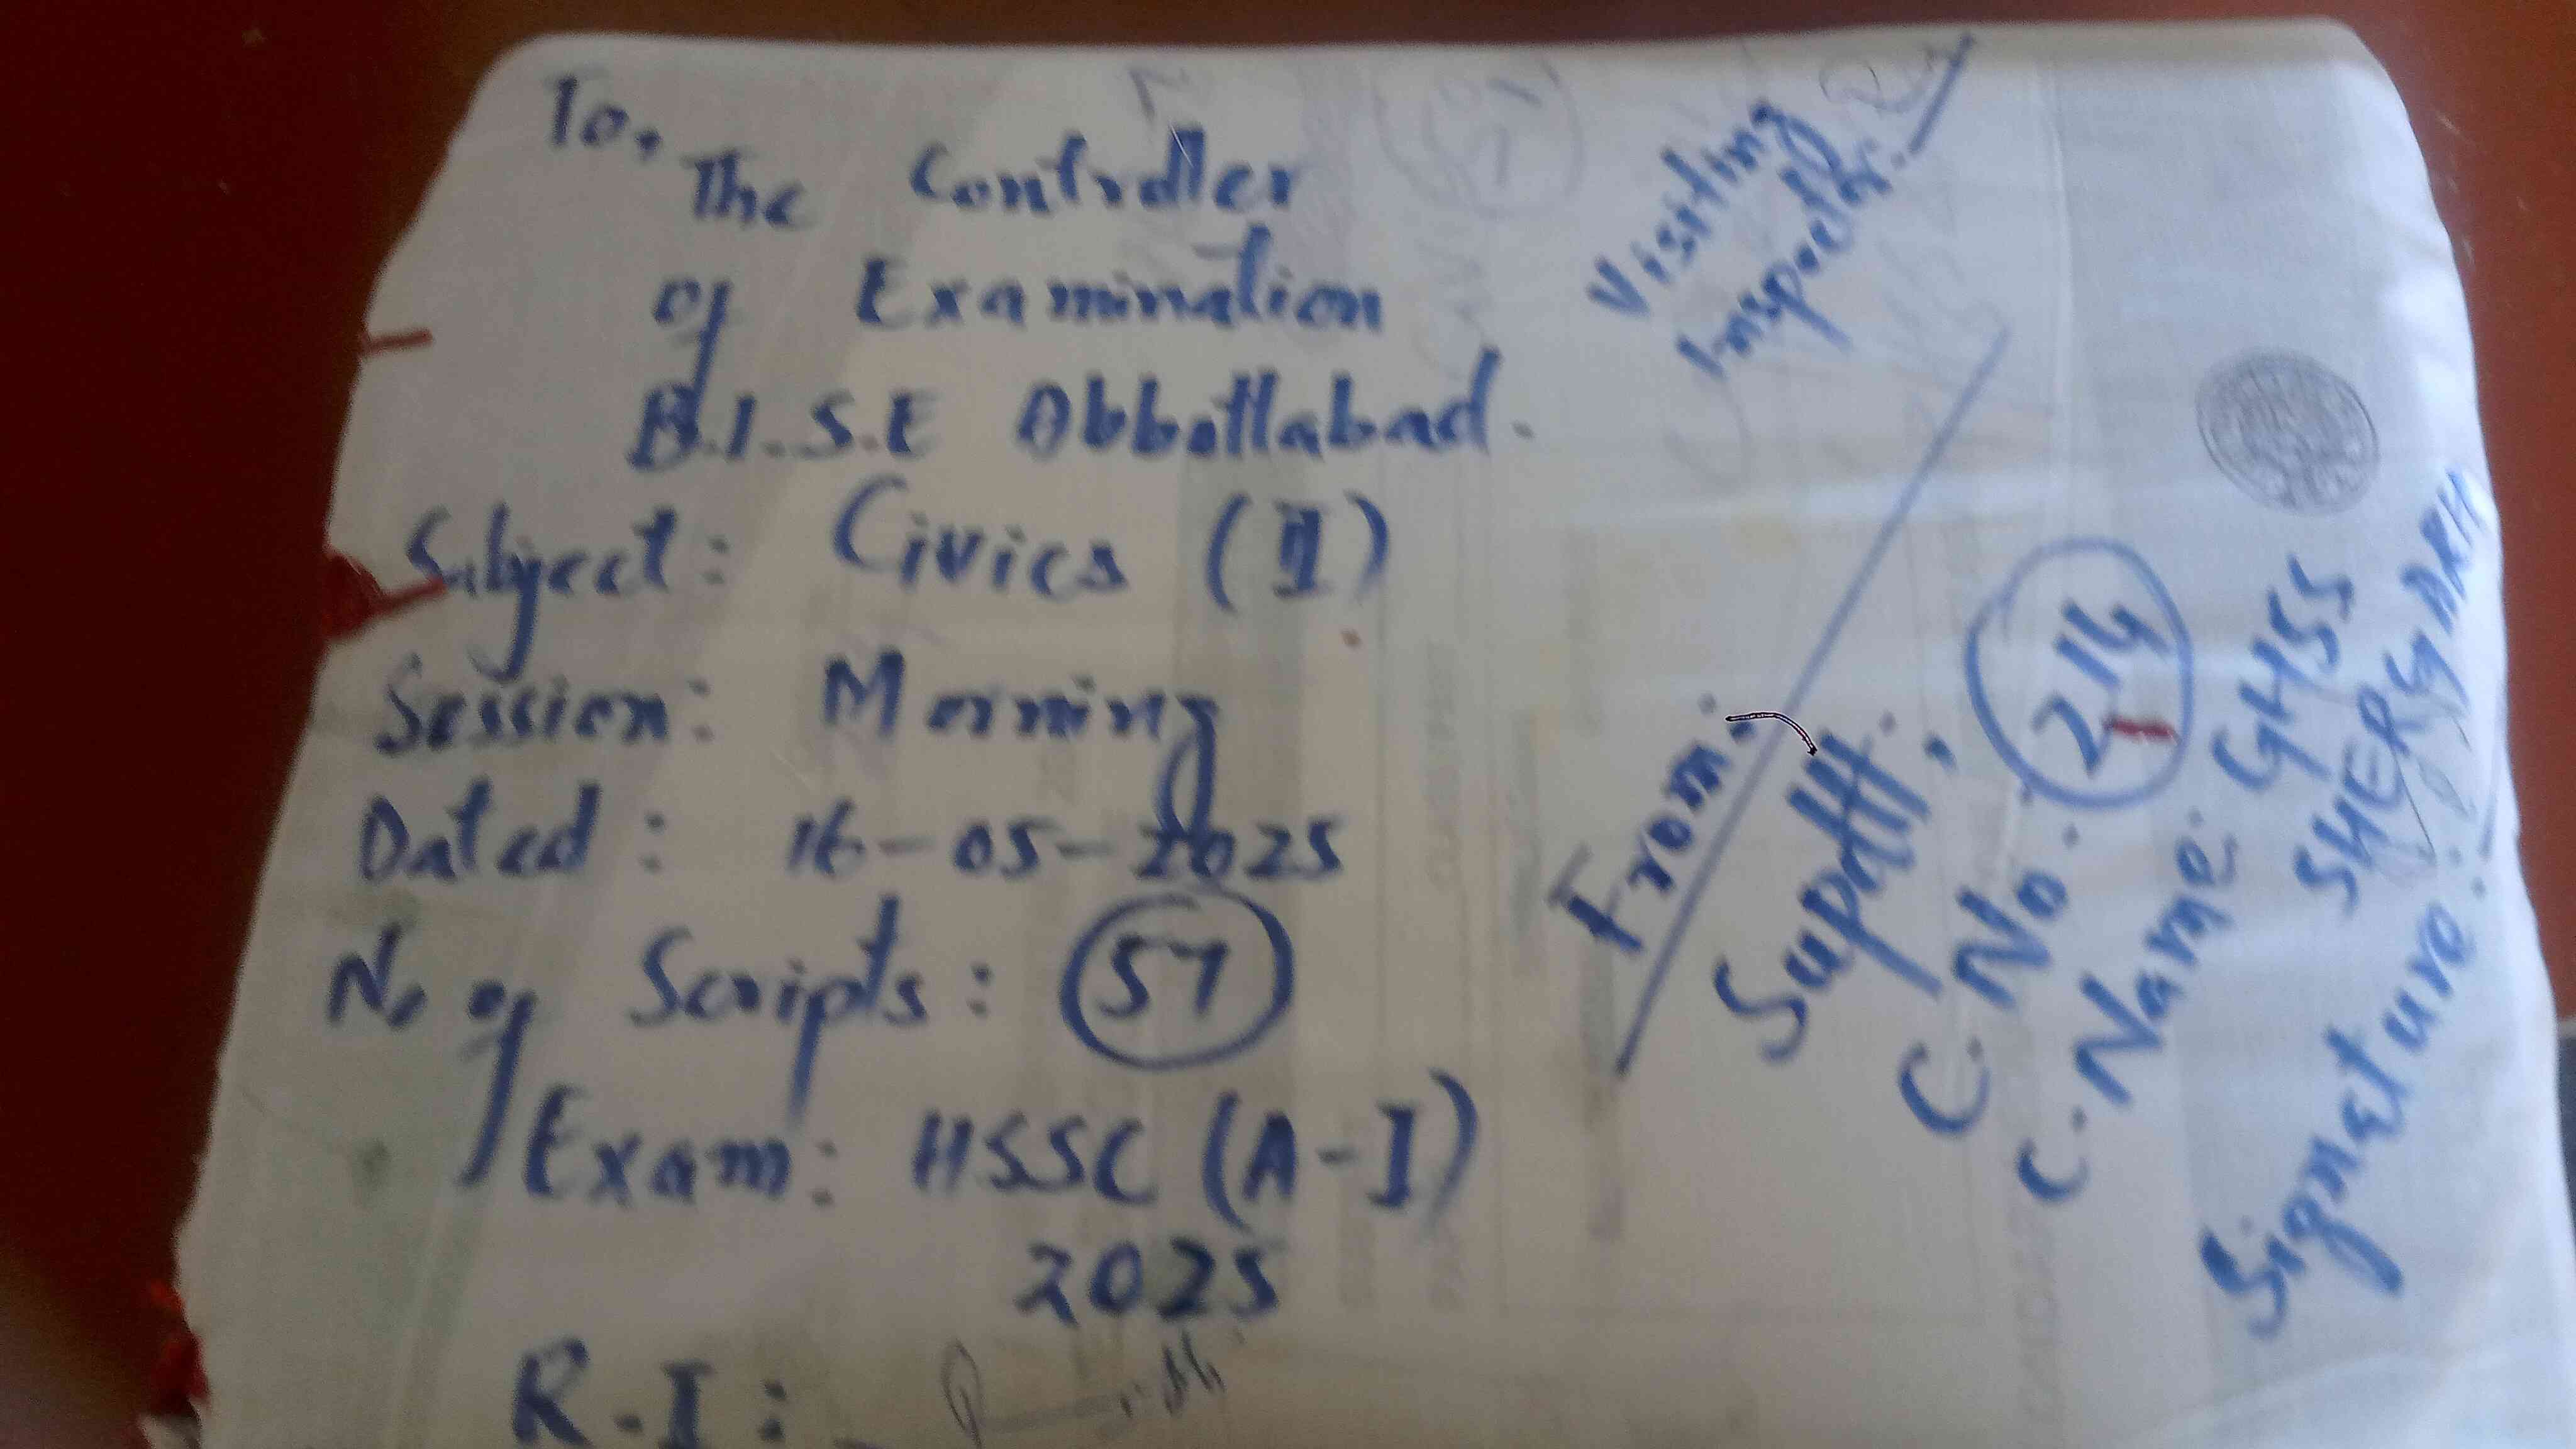 To,
The Controller
of Examination
B.I.S.E Abbottabad.
Subject: Civics (II)
Session: Morning
Dated: 16-05-2025
No of Scripts: 57
Exam: HSSC (A-I)
2025
R.I:
Visiting
Inspector.
From:
Supdtt,
C. No. 214
C. Name: GHSS
SHERGARH
Signature: